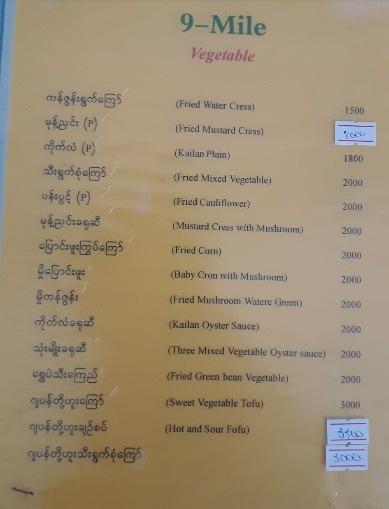 9-Mile
Vegetable
ကန်ဇွန်းရွက်ကြော် (Fried Water Cress) 1500
မုန့်ညင်း (P) (Fried Mustard Cress) 2000
ကိုက်လံ (P) (Kailan Plain) 1800
သီးရွက်စုံကြော် (Fried Mixed Vegetable) 2000
ပန်းပွင့် (P) (Fried Cauliflower) 2000
မုန့်ညင်းခရုဆီ (Mustard Cress with Mushroom) 2000
ပြောင်းဖူးကြွပ်ကြော် (Fried Corn) 2000
မှိုပြောင်းဖူး (Baby Cron with Mushroom) 2000
မှိုကန်ဇွန်း (Fried Mushroom Watere Green) 2000
ကိုက်လံခရုဆီ (Kailan Oyster Sauce) 2000
သုံးမျိုးခရုဆီ (Three Mixed Vegetable Oyster sauce) 2000
ရွှေပဲသီးကြေညို (Fried Green bean Vegetable) 2000
ဂျပန်တို့ဟူးကြော် (Sweet Vegetable Tofu) 3000
ဂျပန်တို့ဟူးချဉ်စပ် (Hot and Sour Fofu) 3500
ဂျပန်တို့ဟူးသီးရွက်စုံကြော် 3000